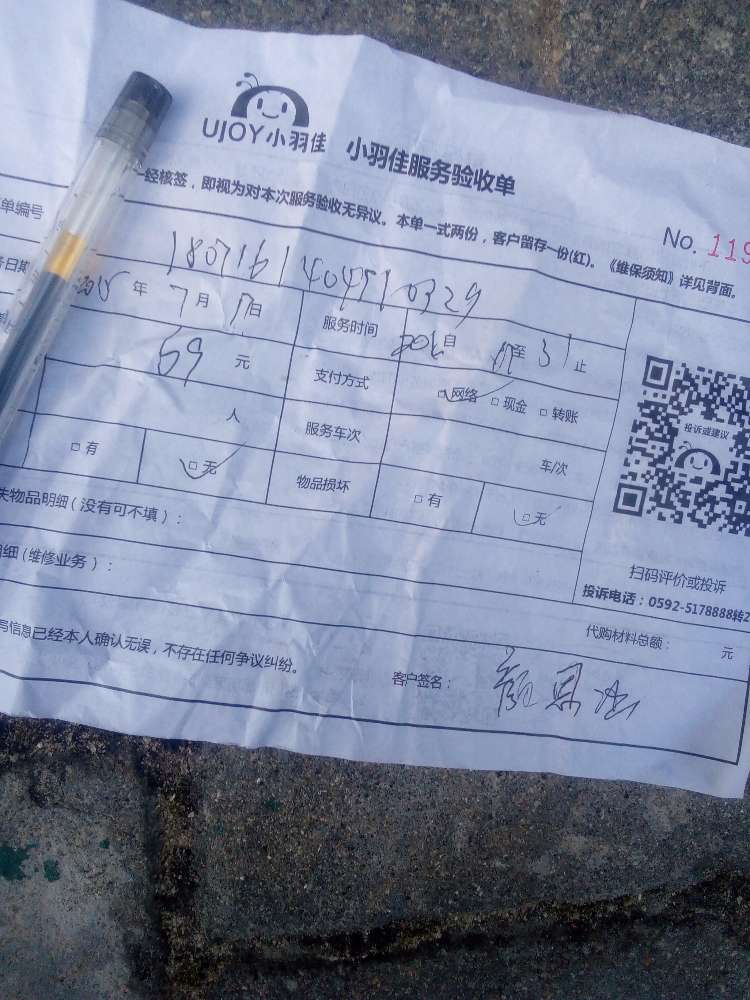 UJOY小羽佳
小羽佳服务验收单
一经核签，即视为对本次服务验收无异议。本单一式两份，客户留存一份(红)。《维保须知》详见背面。
No. 119
单编号
务日期 年 7月 日 服务时间 自 至 止
69 元 支付方式 □网络 □现金 □转账
人 服务车次 车/次
□有 □无 物品损坏 □有 □无
失物品明细(没有可不填)：
明细(维修业务)：
投诉或建议
扫码评价或投诉
投诉电话：0592-5178888转2
代购材料总额： 元
务信息已经本人确认无误，不存在任何争议纠纷。
客户签名：